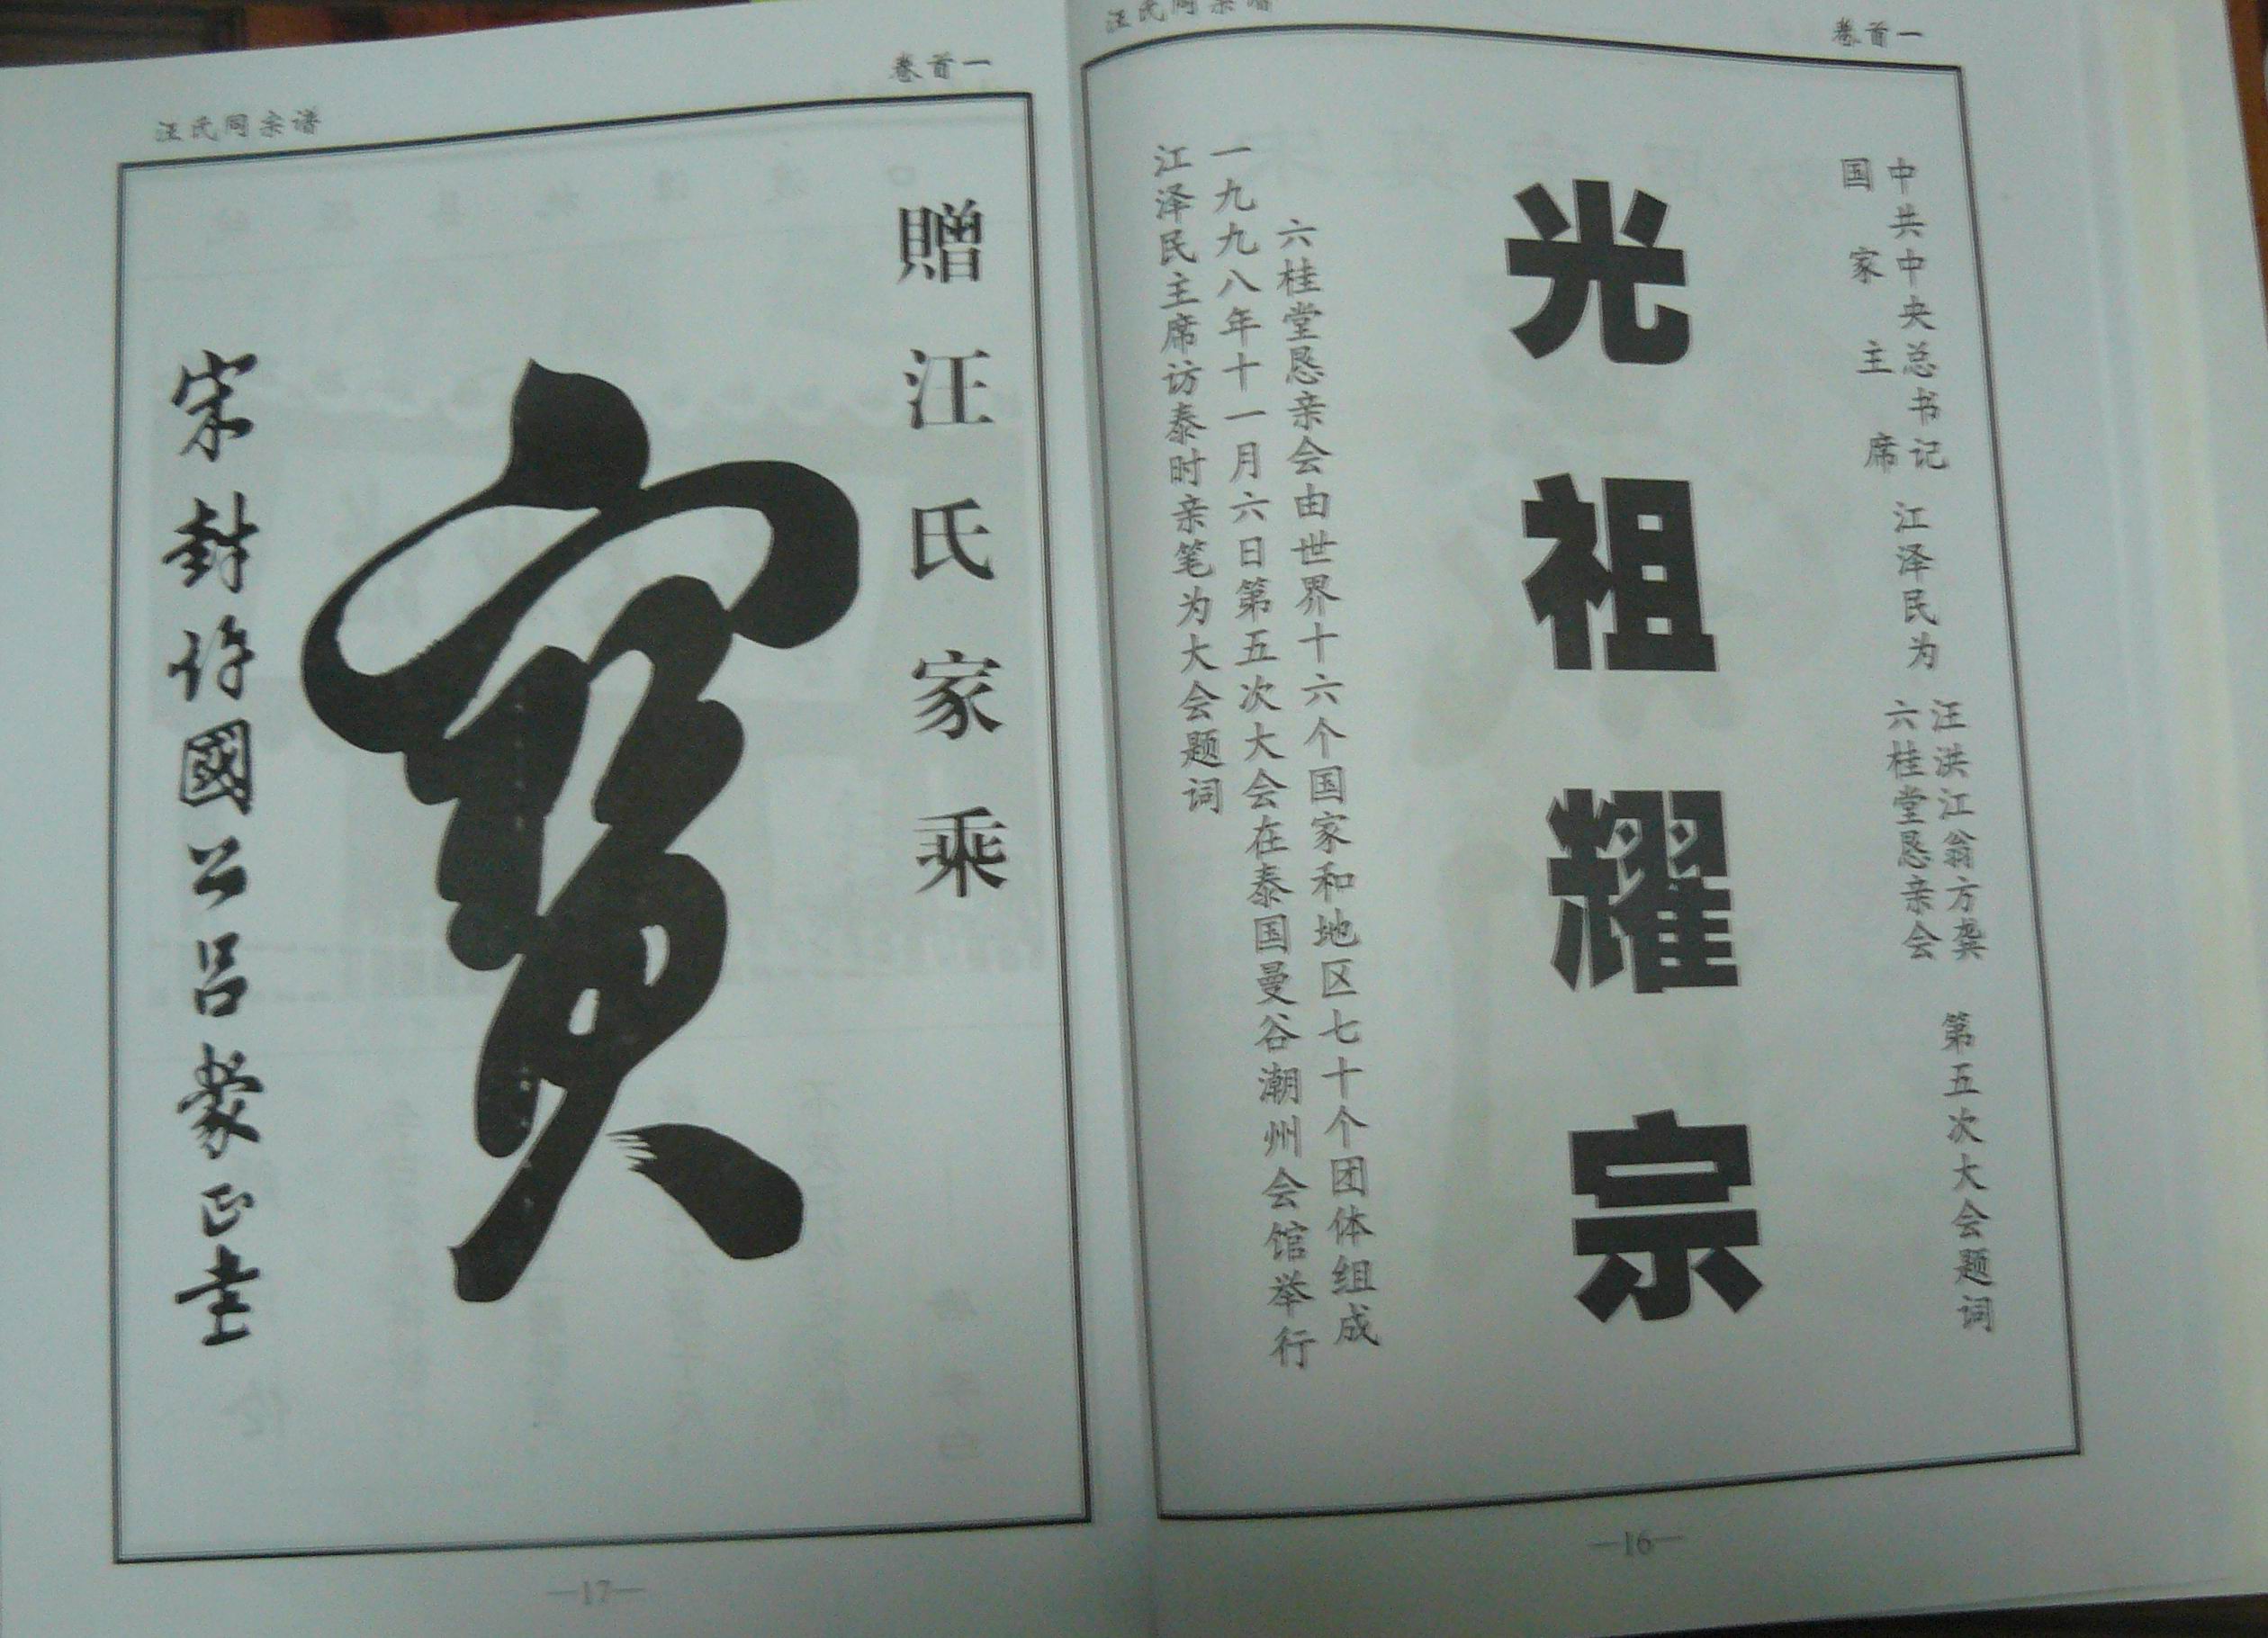 汪氏同宗谱
卷首一
中共中央总书记
国家主席
江泽民为
汪洪江翁方龚
六桂堂恳亲会
第五次大会题词
光祖耀宗
六桂堂恳亲会由世界十六个国家和地区七十个团体组成
一九九八年十一月六日第五次大会在泰国曼谷潮州会馆举行
江泽民主席访泰时亲笔为大会题词
—16—
汪氏同宗谱
卷首一
贈汪氏家乘
寶
宋封许國公吕蒙正書
—17—